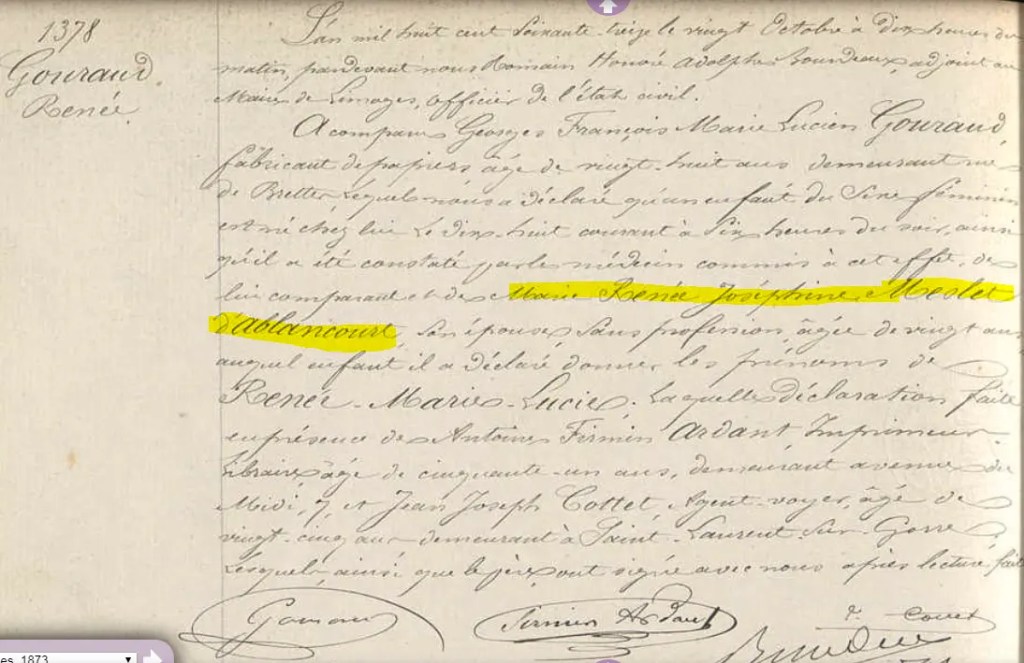 1378
Gouraud
Renée
L'an mil huit cent soixante-treize le vingt Octobre à dix heures du
matin, pardevant nous Romain Honoré Adolphe Bourdeaux, adjoint au
Maire de Limoges, officier de l'état civil.
A comparu Georges François Marie Lucien Gouraud
fabricant de papiers âgé de vingt-huit ans demeurant rue
de Brettes lequel nous a déclaré qu'un enfant du Sexe féminin
est né chez lui le dix-huit courant à six heures du soir, ainsi
qu'il a été constaté par le médecin commis à cet effet, de
lui comparant et de Marie Renée Joséphine Meslet
d'Ablancourt, son épouse, sans profession, âgée de vingt ans
auquel enfant il a déclaré donner les prénoms de
Renée-Marie-Lucie. Laquelle déclaration faite
en présence de Antoine Firmin Ardant, Imprimeur
Libraire, âgé de cinquante-un ans, demeurant avenue du
Midi, 7, et Jean Joseph Cottet, Agent-voyer, âgé de
vingt-cinq ans demeurant à Saint-Laurent-Sur-Gorre
Lesquels ainsi que le père ont signé avec nous après lecture faite
Gouraud Firmin Ardant
1873